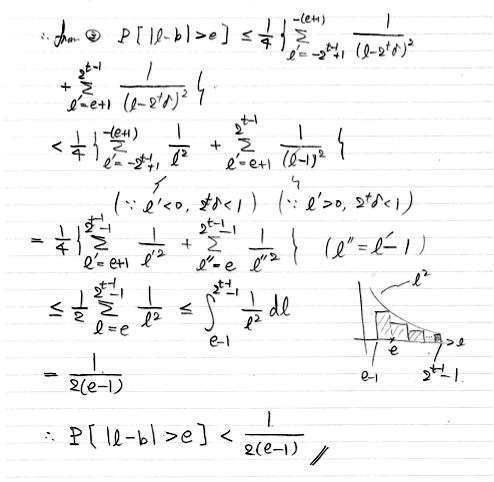 ∴ from ② P[|l-b|>e] ≤ 1/4 { Σ_{l'=-2^{t-1}+1}^{-(e+1)} 1/(l-2^tδ)^2
+ Σ_{l'=e+1}^{2^{t-1}} 1/(l-2^tδ)^2 }
< 1/4 { Σ_{l'=-2^{t-1}+1}^{-(e+1)} 1/l^2 + Σ_{l'=e+1}^{2^{t-1}} 1/(l-1)^2 }
(∵ l'<0, 2^tδ<1) (∵ l'>0, 2^tδ<1)
= 1/4 { Σ_{l'=e+1}^{2^{t-1}-1} 1/l'^2 + Σ_{l''=e}^{2^{t-1}-1} 1/l''^2 } (l''=l'-1)
≤ 1/2 Σ_{l=e}^{2^{t-1}-1} 1/l^2 ≤ ∫_{e-1}^{2^{t-1}-1} 1/l^2 dl
l^2
> l
e
e-1
2^{t-1}-1
= 1/2(e-1)
∴ P[|l-b|>e] < 1/2(e-1) //